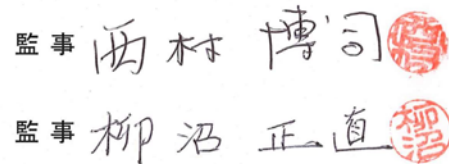 監事 西村 博司
監事 柳沼 正直